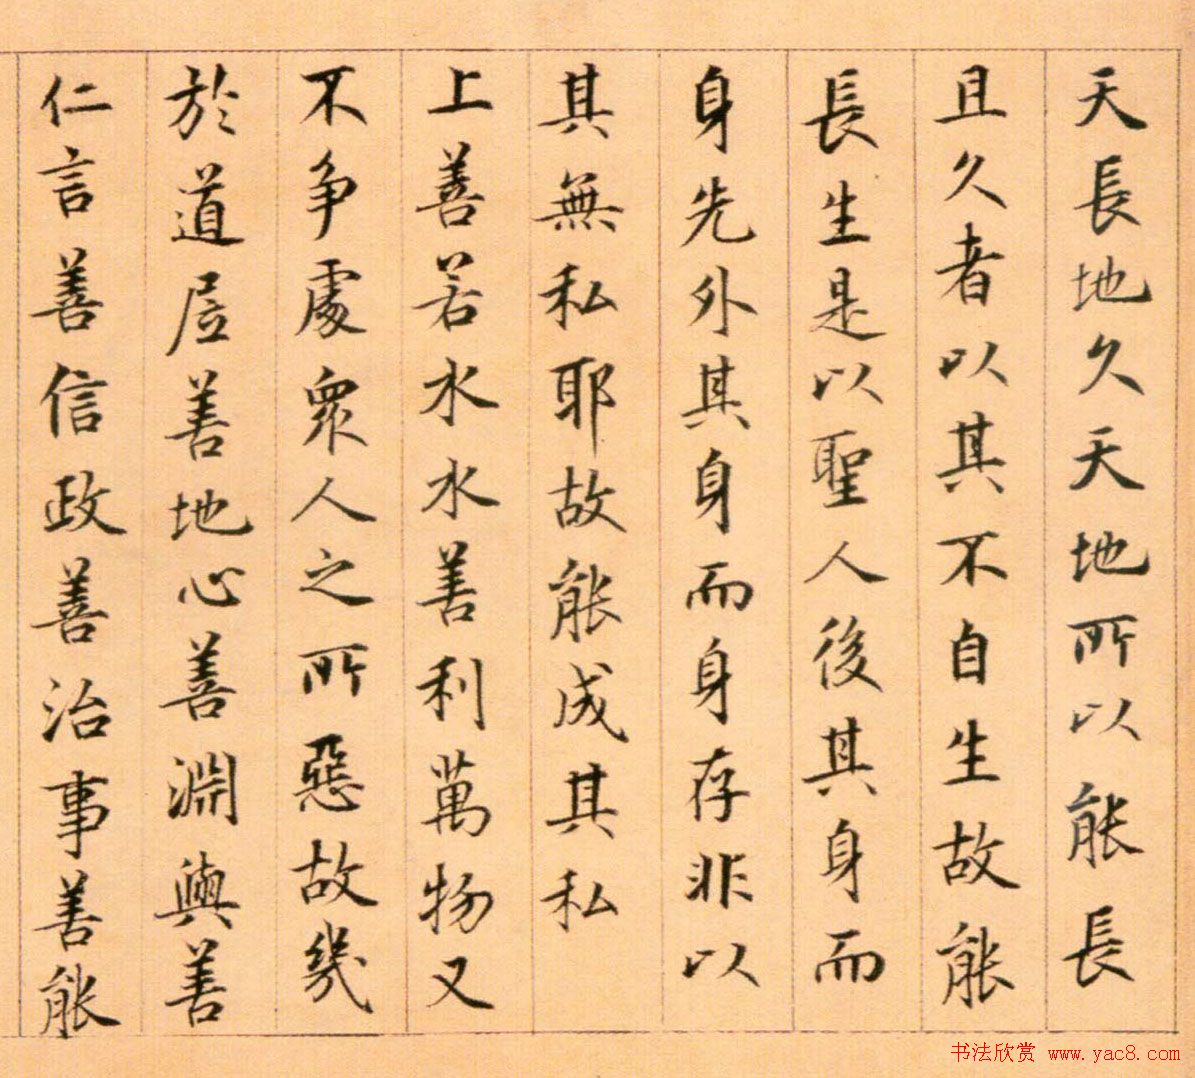 天長地久天地所以能長
且久者以其不自生故能
長生是以聖人後其身而
身先外其身而身存非以
其無私耶故能成其私
上善若水水善利萬物又
不争處眾人之所惡故幾
於道居善地心善淵與善
仁言善信政善治事善能
书法欣赏 www.yac8.com